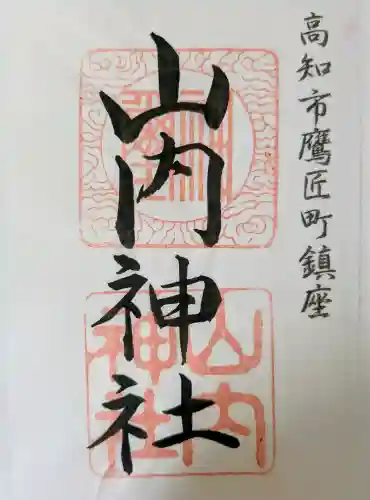 高知市鷹匠町鎮座
山内神社
山内
神社